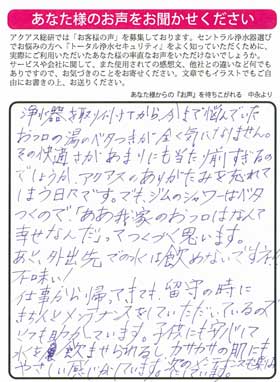 あなた様のお声をお聞かせください
アクアス総研では「お客様の声」を募集しております。セントラル浄水器選び
でお悩みの方へ「トータル浄水セキュリティ」をよく知っていただくために、
実際にご利用いただいたあなた様の率直なお声をいただけないでしょうか。
サービスや会社に関して、また使用されての感想文、他社との違いなど何でも
ありですので、お気づきのことをお寄せください。文章でもイラストでもご自
由にお書きの上、お送りください。
あなた様からの『お声』を待ちこがれる 中永より
浄水器を取り付けてから今まで悩んでいた
おフロの湯のベタつきが全く気になりません。
その快適さがあまりにも当た前すぎるの
でしょうか、アクアスのありがたみを忘れて
しまう日々です。でも、ジムのシャワーはベタ
つくので「ああ我家のおフロはなんて
幸せなんだ」ってつくづく思います。
あと、外出先での水は飲めないです
不味い!
仕事から帰ってきても、留守の時に
きちんとメンテナンスをしていただいているので
いつも助かっています。子供にも安心して
水を飲ませられるし、カサカサの肌にも
やさしい感じがしています。